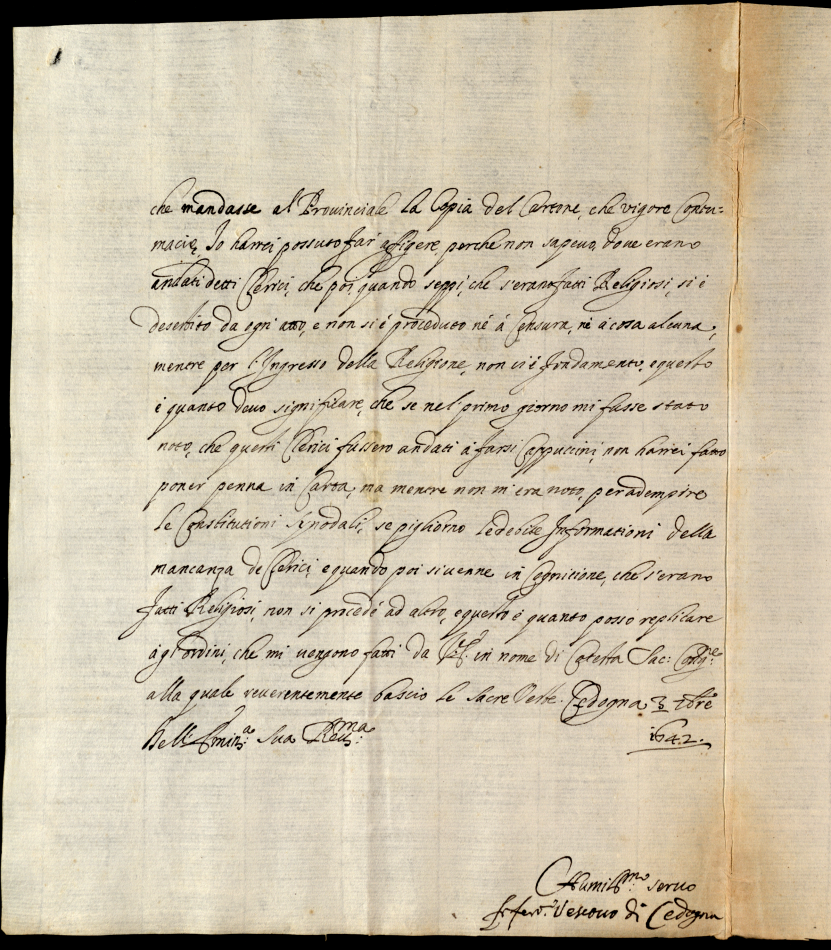 che mandasse al Provinciale la Copia del Cartone, che vigore Contu=
macie, Io harrei possuto far affigere, perche non sapevo, dove erano
andati detti Clerici, che poi quando seppi, che s'erano fatti Religiosi, si è
desistito da ogni atto, e non si è proceduto nè à Censura, nè à cosa alcuna,
mentre per l'Ingresso della Religione, non vi è fondamento, e questo
è quanto devo significare, che se nel primo giorno mi fusse stato
noto, che questi Clerici fussero andati à farsi Cappuccini, non harrei fatto
poner penna in Carta, ma mentre non m'era noto, per adempire
le Constitutioni sinodali, se pigliorno le debite Informationi della
mancanza de Clerici, e quando poi si venne in Cognitione, che s'erano
fatti Religiosi, non si procedè ad altro, e questo è quanto posso replicare
à gl'ordini, che mi vengono fatti da in nome di Cotesta Sac: Congne:
alla quale reverentemente bascio le Sacre Veste. Cedogna 3 xbre
Dell' Eminza: Sua Revma: 1642.
Humilmo servo
Vescovo di Cedogna